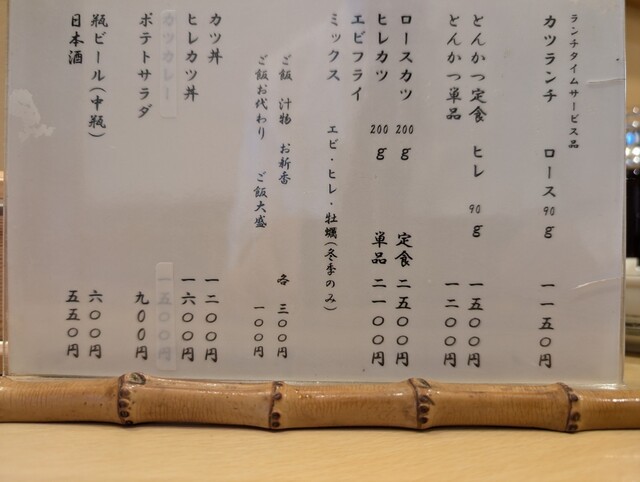 ランチタイムサービス品
カツランチ ロース90g 一一五〇円
とんかつ定食 ヒレ90g 一五〇〇円
とんかつ単品 一二〇〇円
ロースカツ 200g 定食 二五〇〇円
ヒレカツ 200g 単品 二一〇〇円
エビフライ
ミックス エビ・ヒレ・牡蠣(冬季のみ)
ご飯 汁物 お新香 各 三〇〇円
ご飯お代わり ご飯大盛 一〇〇円
カツ丼 一二〇〇円
ヒレカツ丼 一六〇〇円
カツカレー 一五〇〇円
ポテトサラダ 九〇〇円
瓶ビール(中瓶) 六〇〇円
日本酒 五五〇円